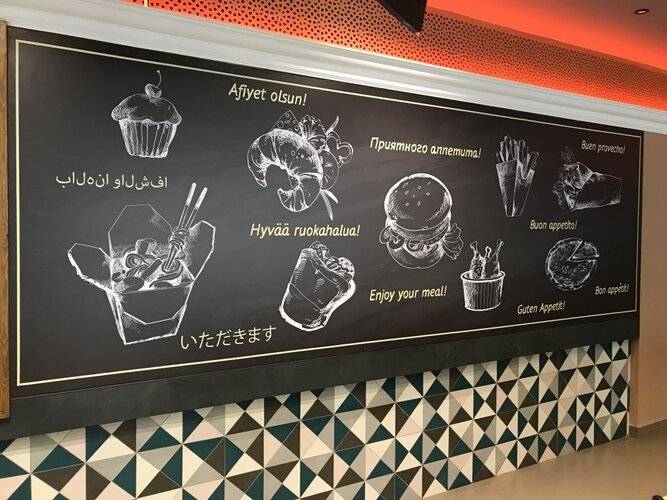 Afiyet olsun!
Приятного аппетита!
Buen provecho!
افشلاو انهلاب
Hyvää ruokahalua!
Buon appetito!
Enjoy your meal!
Guten Appetit!
Bon appétit!
いただきます